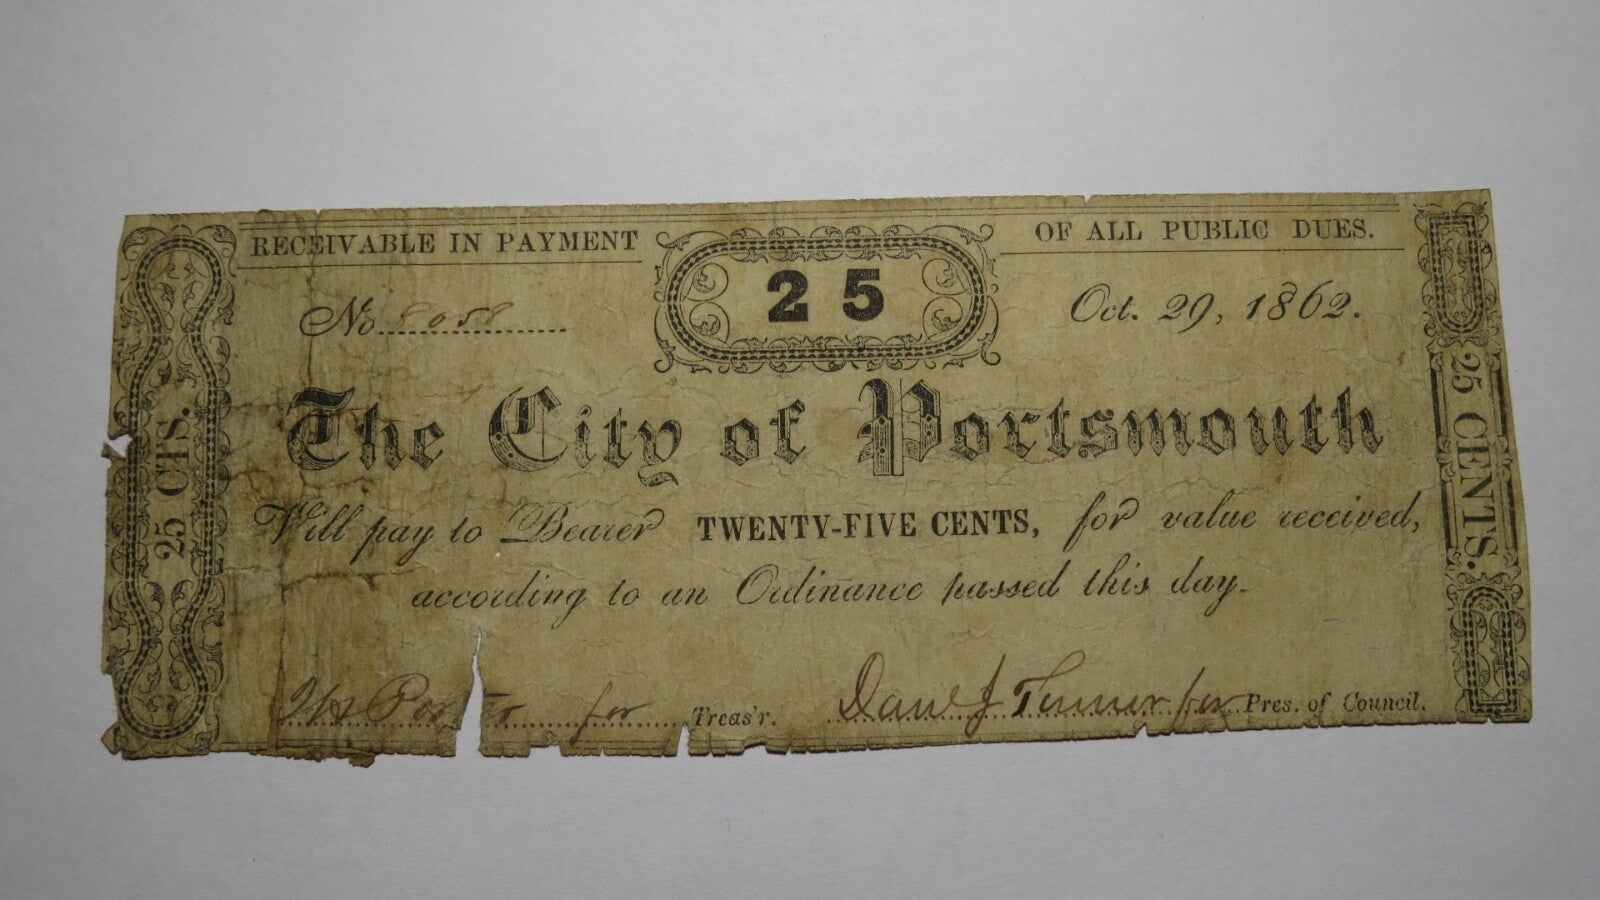 RECEIVABLE IN PAYMENT OF ALL PUBLIC DUES.
25
No. 8058
Oct. 29, 1862.
The City of Portsmouth
Will pay to Bearer TWENTY-FIVE CENTS, for value received,
according to an Ordinance passed this day.
Porter for Treas'r.
Danl J Turner for Pres. of Council.
25 CTS.
25 CENTS.